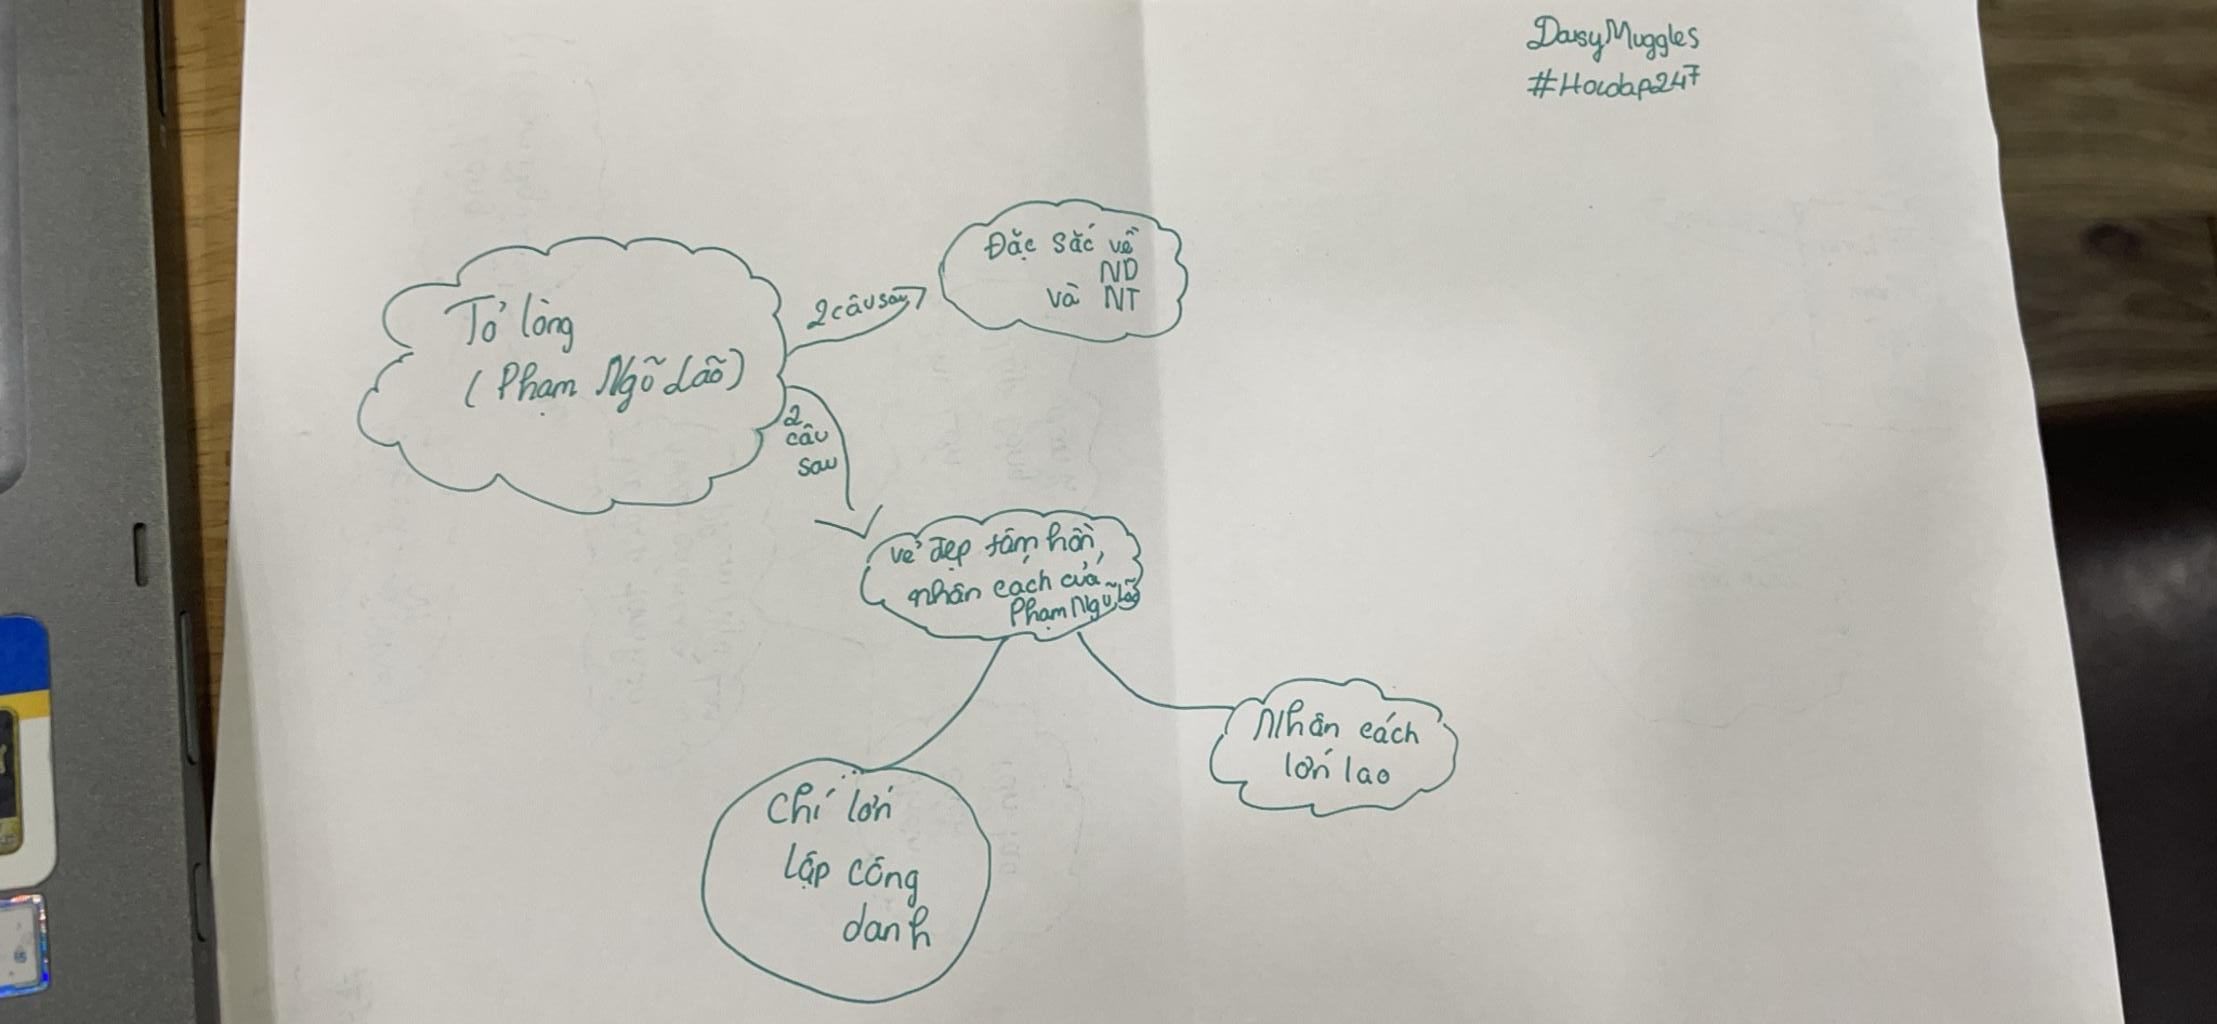 DaisyMuggles
#Hoidap247
Tỏ lòng
(Phạm Ngũ Lão)
2 câu sau
Đặc sắc về
ND
và NT
2
câu
sau
vẻ đẹp tâm hồn,
nhân cách của
Phạm Ngũ Lão
Nhân cách
lớn lao
Chí lớn
lập công
danh